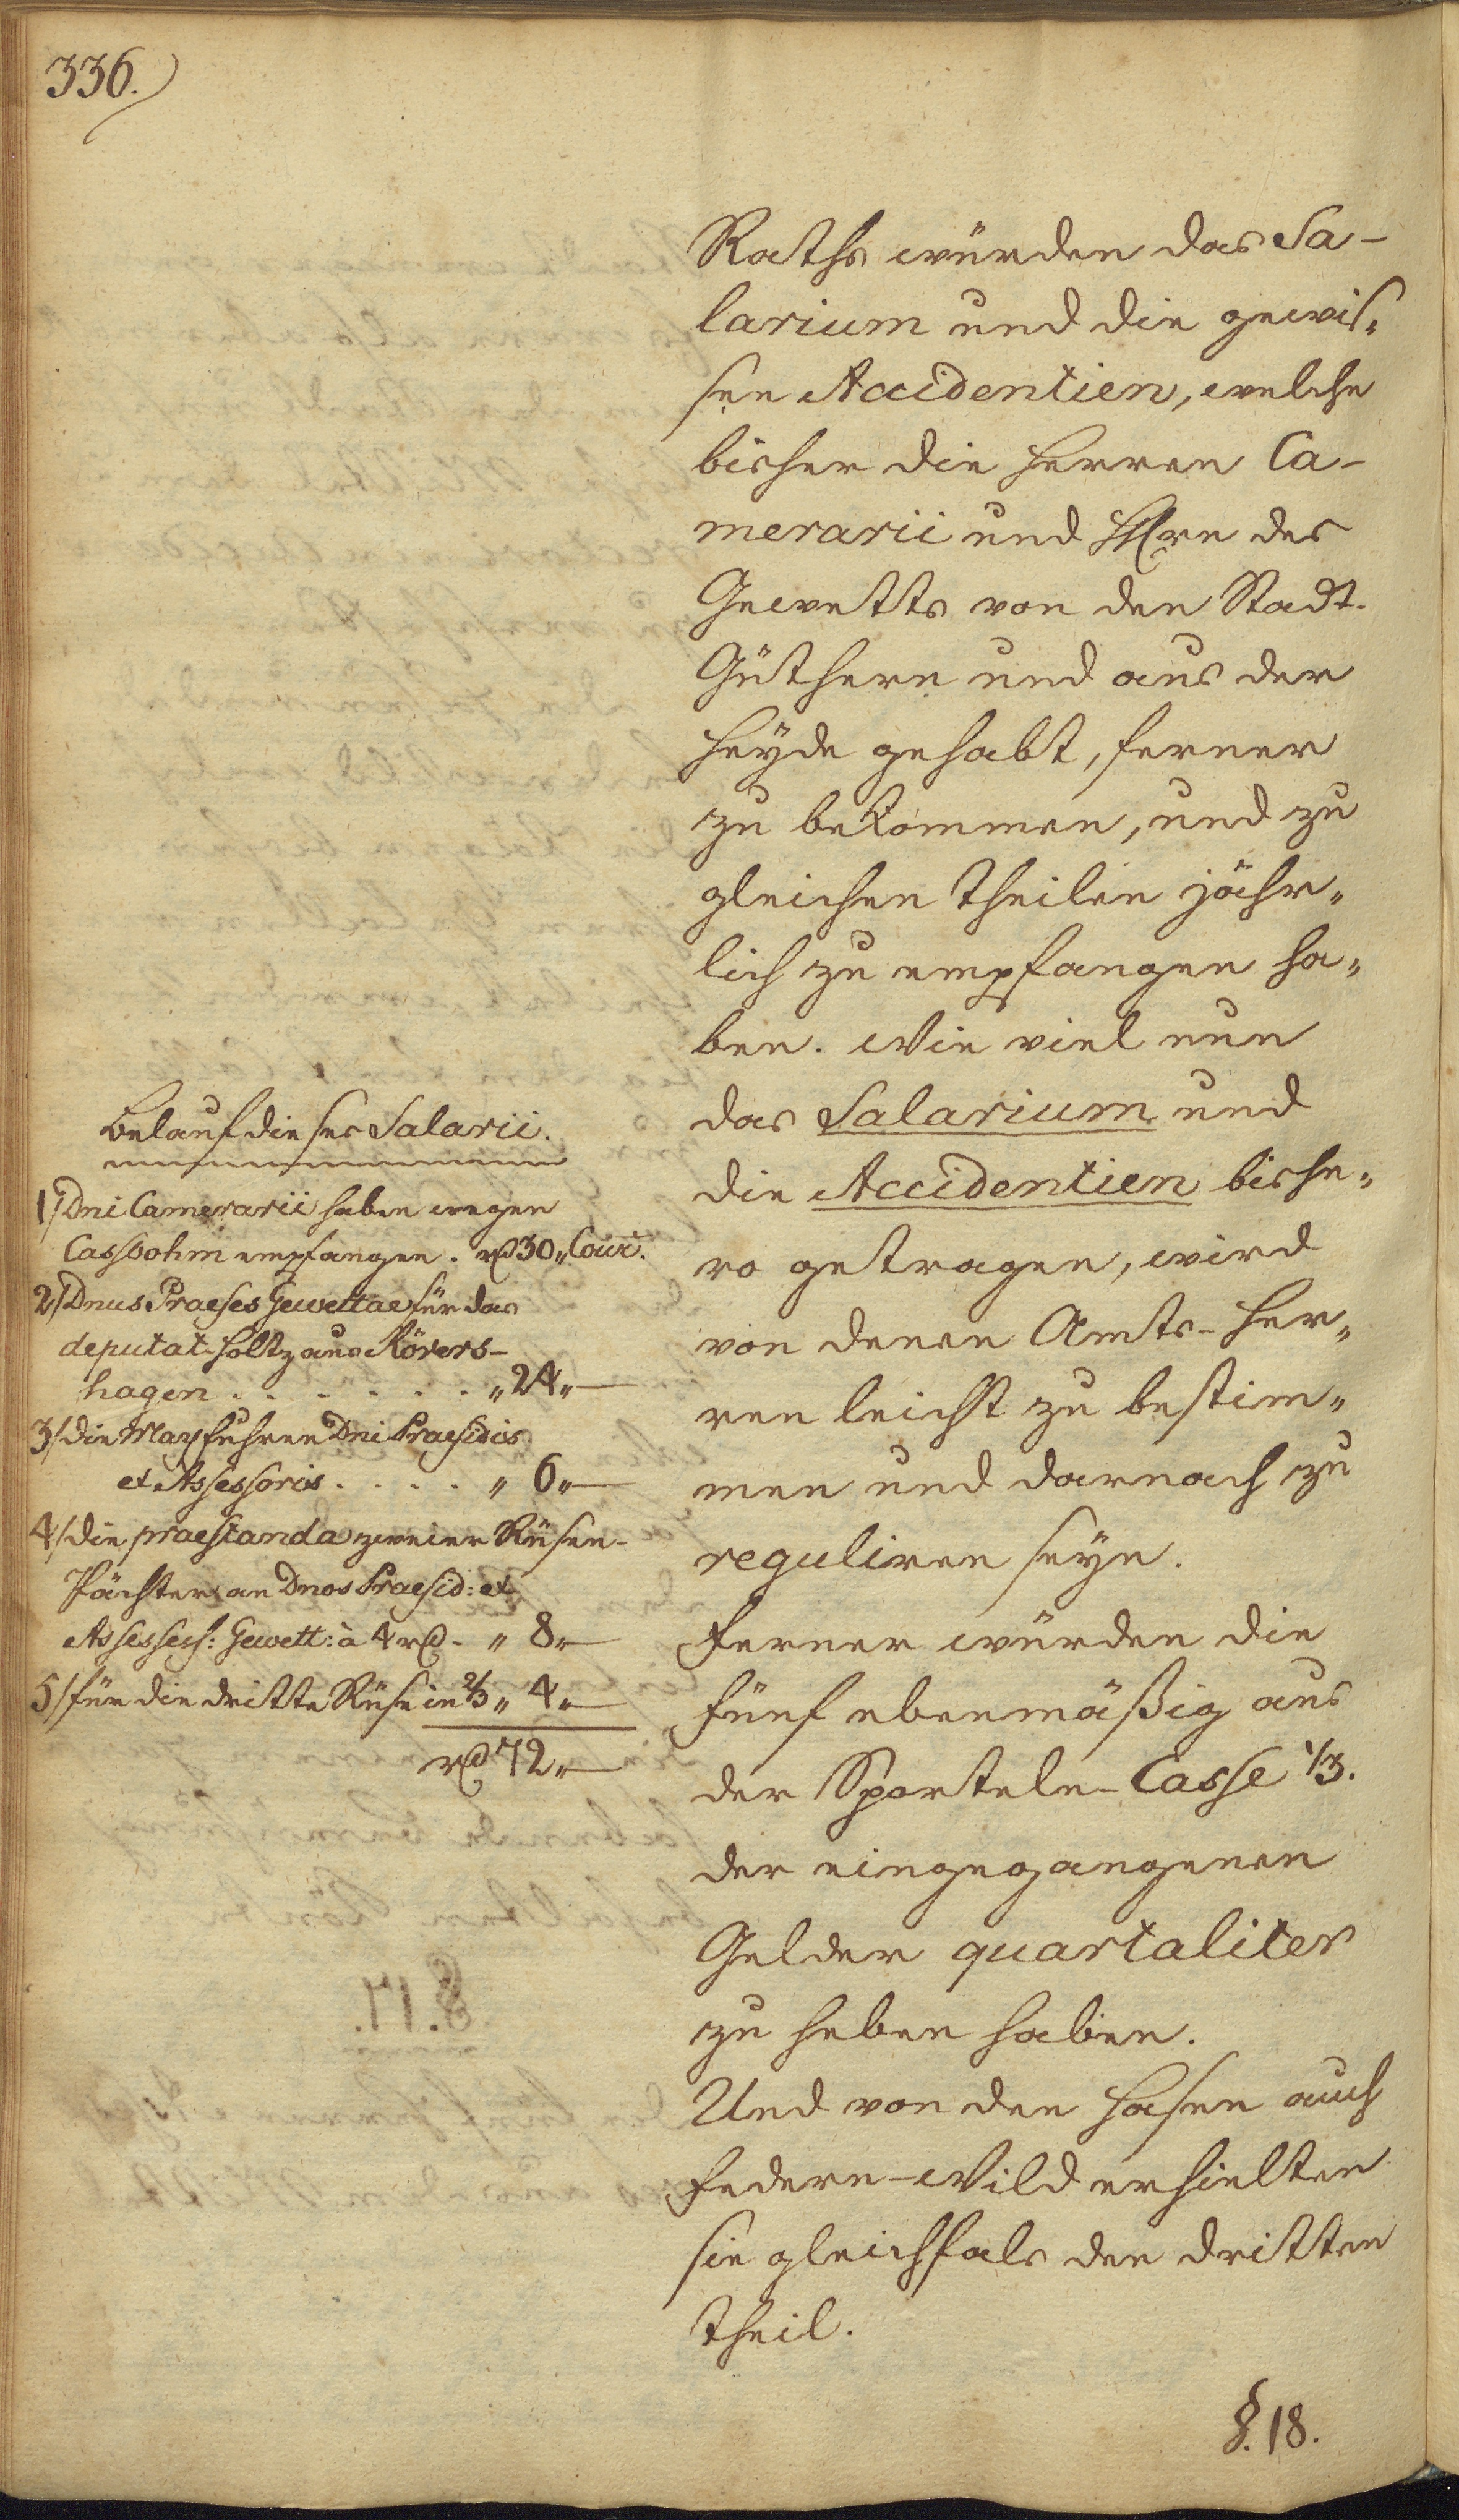 336.
Raths würden das Sa-
larium und die gewis„
sen Accidentien, welche
bisher die Herren Ca-
merarii und HHrn des
Gewetts von den Stadt-
Güthern und aus der
Heyde gehabt, ferner
zu bekommen, und zu
gleichen Theilen jähr„
lich zu empfangen ha„
ben. Wie viel nun
das Salarium und
die Accidentien bishe„
ro getragen, wird
von denen Amts-Her„
ren leicht zu bestim„
men und darnach zu
reguliren seyn.
Ferner würden die
fünf ebenmäßig aus
der Sporteln-Casse 1/3.
der eingegangenen
Gelder quartaliter
zu heben haben.
Und von den Hasen auch
Federn-Wild erhielten
sie gleichfals den dritten
Theil.
§. 18.
Belauf dieses Salarii.
1/ Dni Camerarii haben wegen
Cassbohm empfangen. rthl 30„ Cour.
2/ Dnus Praeses Gewettae für das
deputat-Holtz aus Rövers-
hagen . . . . . . „ 24„—
3/ die May fuhren Dni Praesidis
et Assessoris . . . . „ 6„—
4/ die praestanda zweier Rüsen-
Pächter an Dnos Praesid: et
Assessess: Gewett: à 4 rthl - „ 8„—
5/ für die dritte Rüse in 2/3 „ 4„—
rthl 72„—